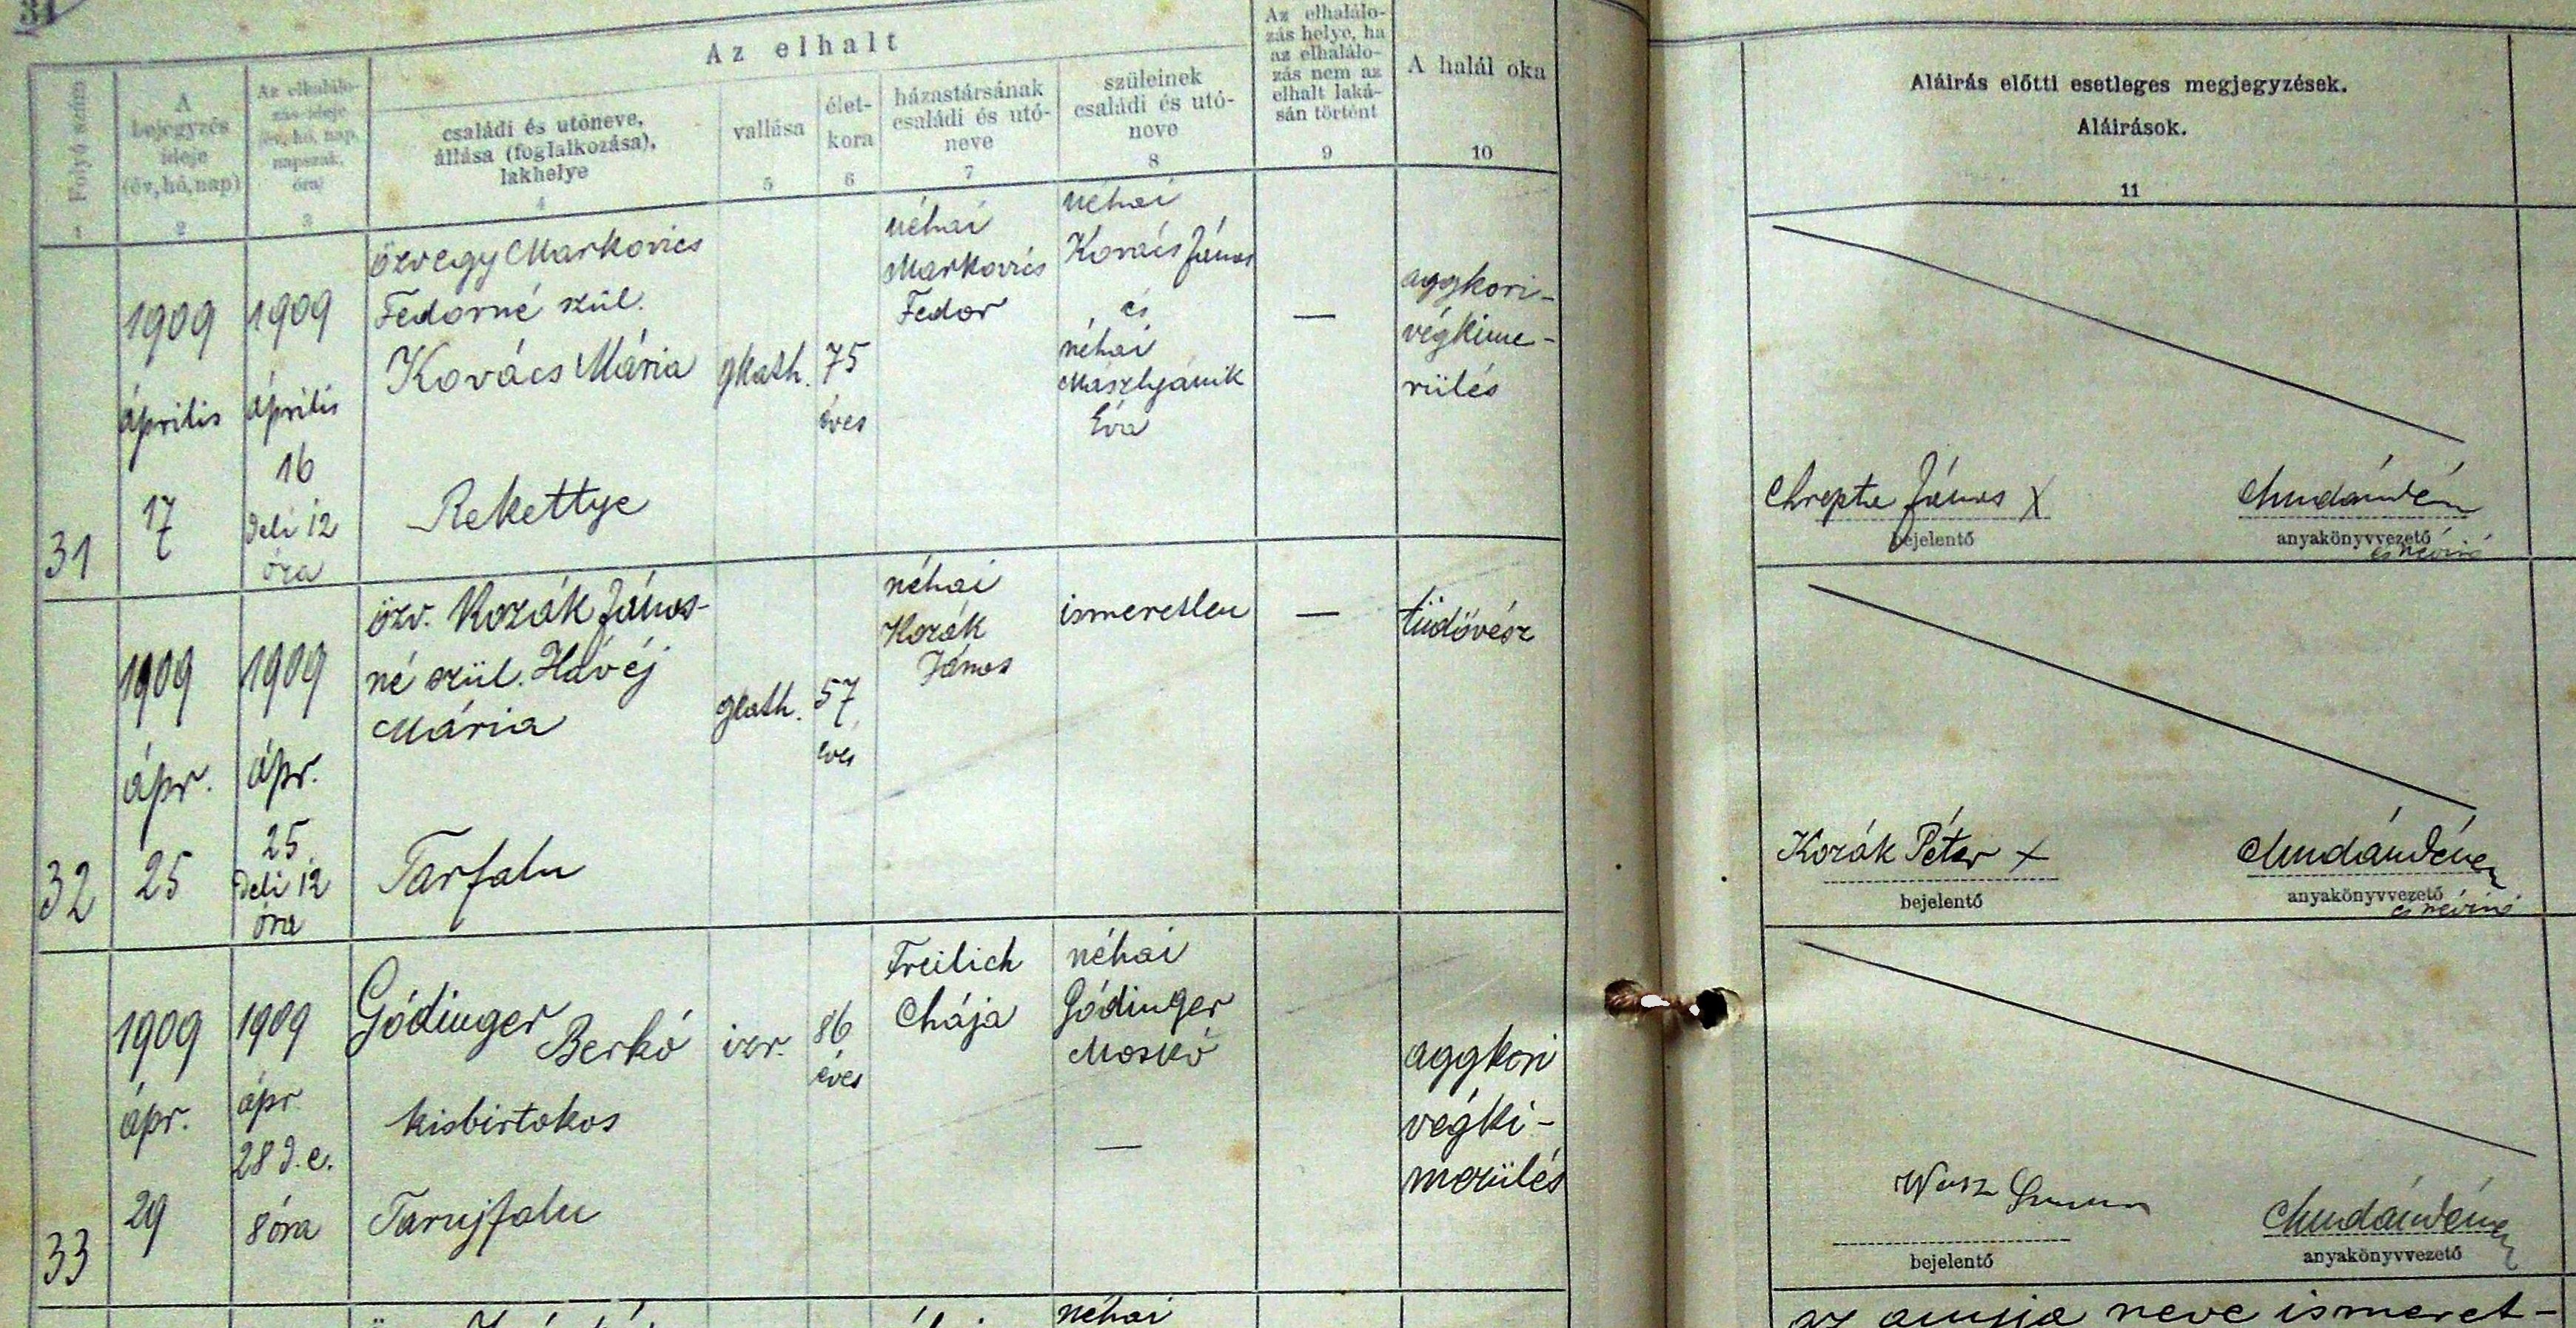 31
Az elhalt
Folyó szám
A
bejegyzés
ideje
(év, hó, nap)
Az elhalálo-
zás ideje
(év, hó, nap,
napszak,
óra)
családi és utóneve,
állása (foglalkozása),
lakhelye
vallása
élet-
kora
házastársának
családi és utó-
neve
szüleinek
családi és utó-
neve
Az elhalálo-
zás helye, ha
az elhalálo-
zás nem az
elhalt laká-
sán történt
A halál oka
Aláirás előtti esetleges megjegyzések.
Aláirások.
1
2
3
4
5
6
7
8
9
10
11
31
1909
április
17
1909
április
16
deli 12
óra
özvegy Markovics
Fedorné szül.
Kovács Mária
Rekettye
gkath.
75
éves
néhai
Markovics
Fedor
néhai
Kovács János
és
néhai
Maszlyánik
Éva
—
aggkori-
végkime-
rülés
Chrepta János X
bejelentő
anyakönyvvezető
és névíró
32
1909
ápr.
25
1909
ápr.
25
deli 12
óra
özv. Kozák János-
né szül. Hávéj
Mária
Tarfalu
gkath.
57
éves
néhai
Kozák
János
ismeretlen
—
tüdővész
Kozák Péter X
bejelentő
anyakönyvvezető
és névíró
33
1909
ápr.
29
1909
ápr
28 d.e.
8 óra
Gódinger Berkó
kisbirtokos
Tarujfalu
izr.
86
éves
Freilich
Chája
néhai
Gódinger
Moskó
—
aggkori
végki-
merülés
bejelentő
anyakönyvvezető
néhai
az anyja neve ismeret-